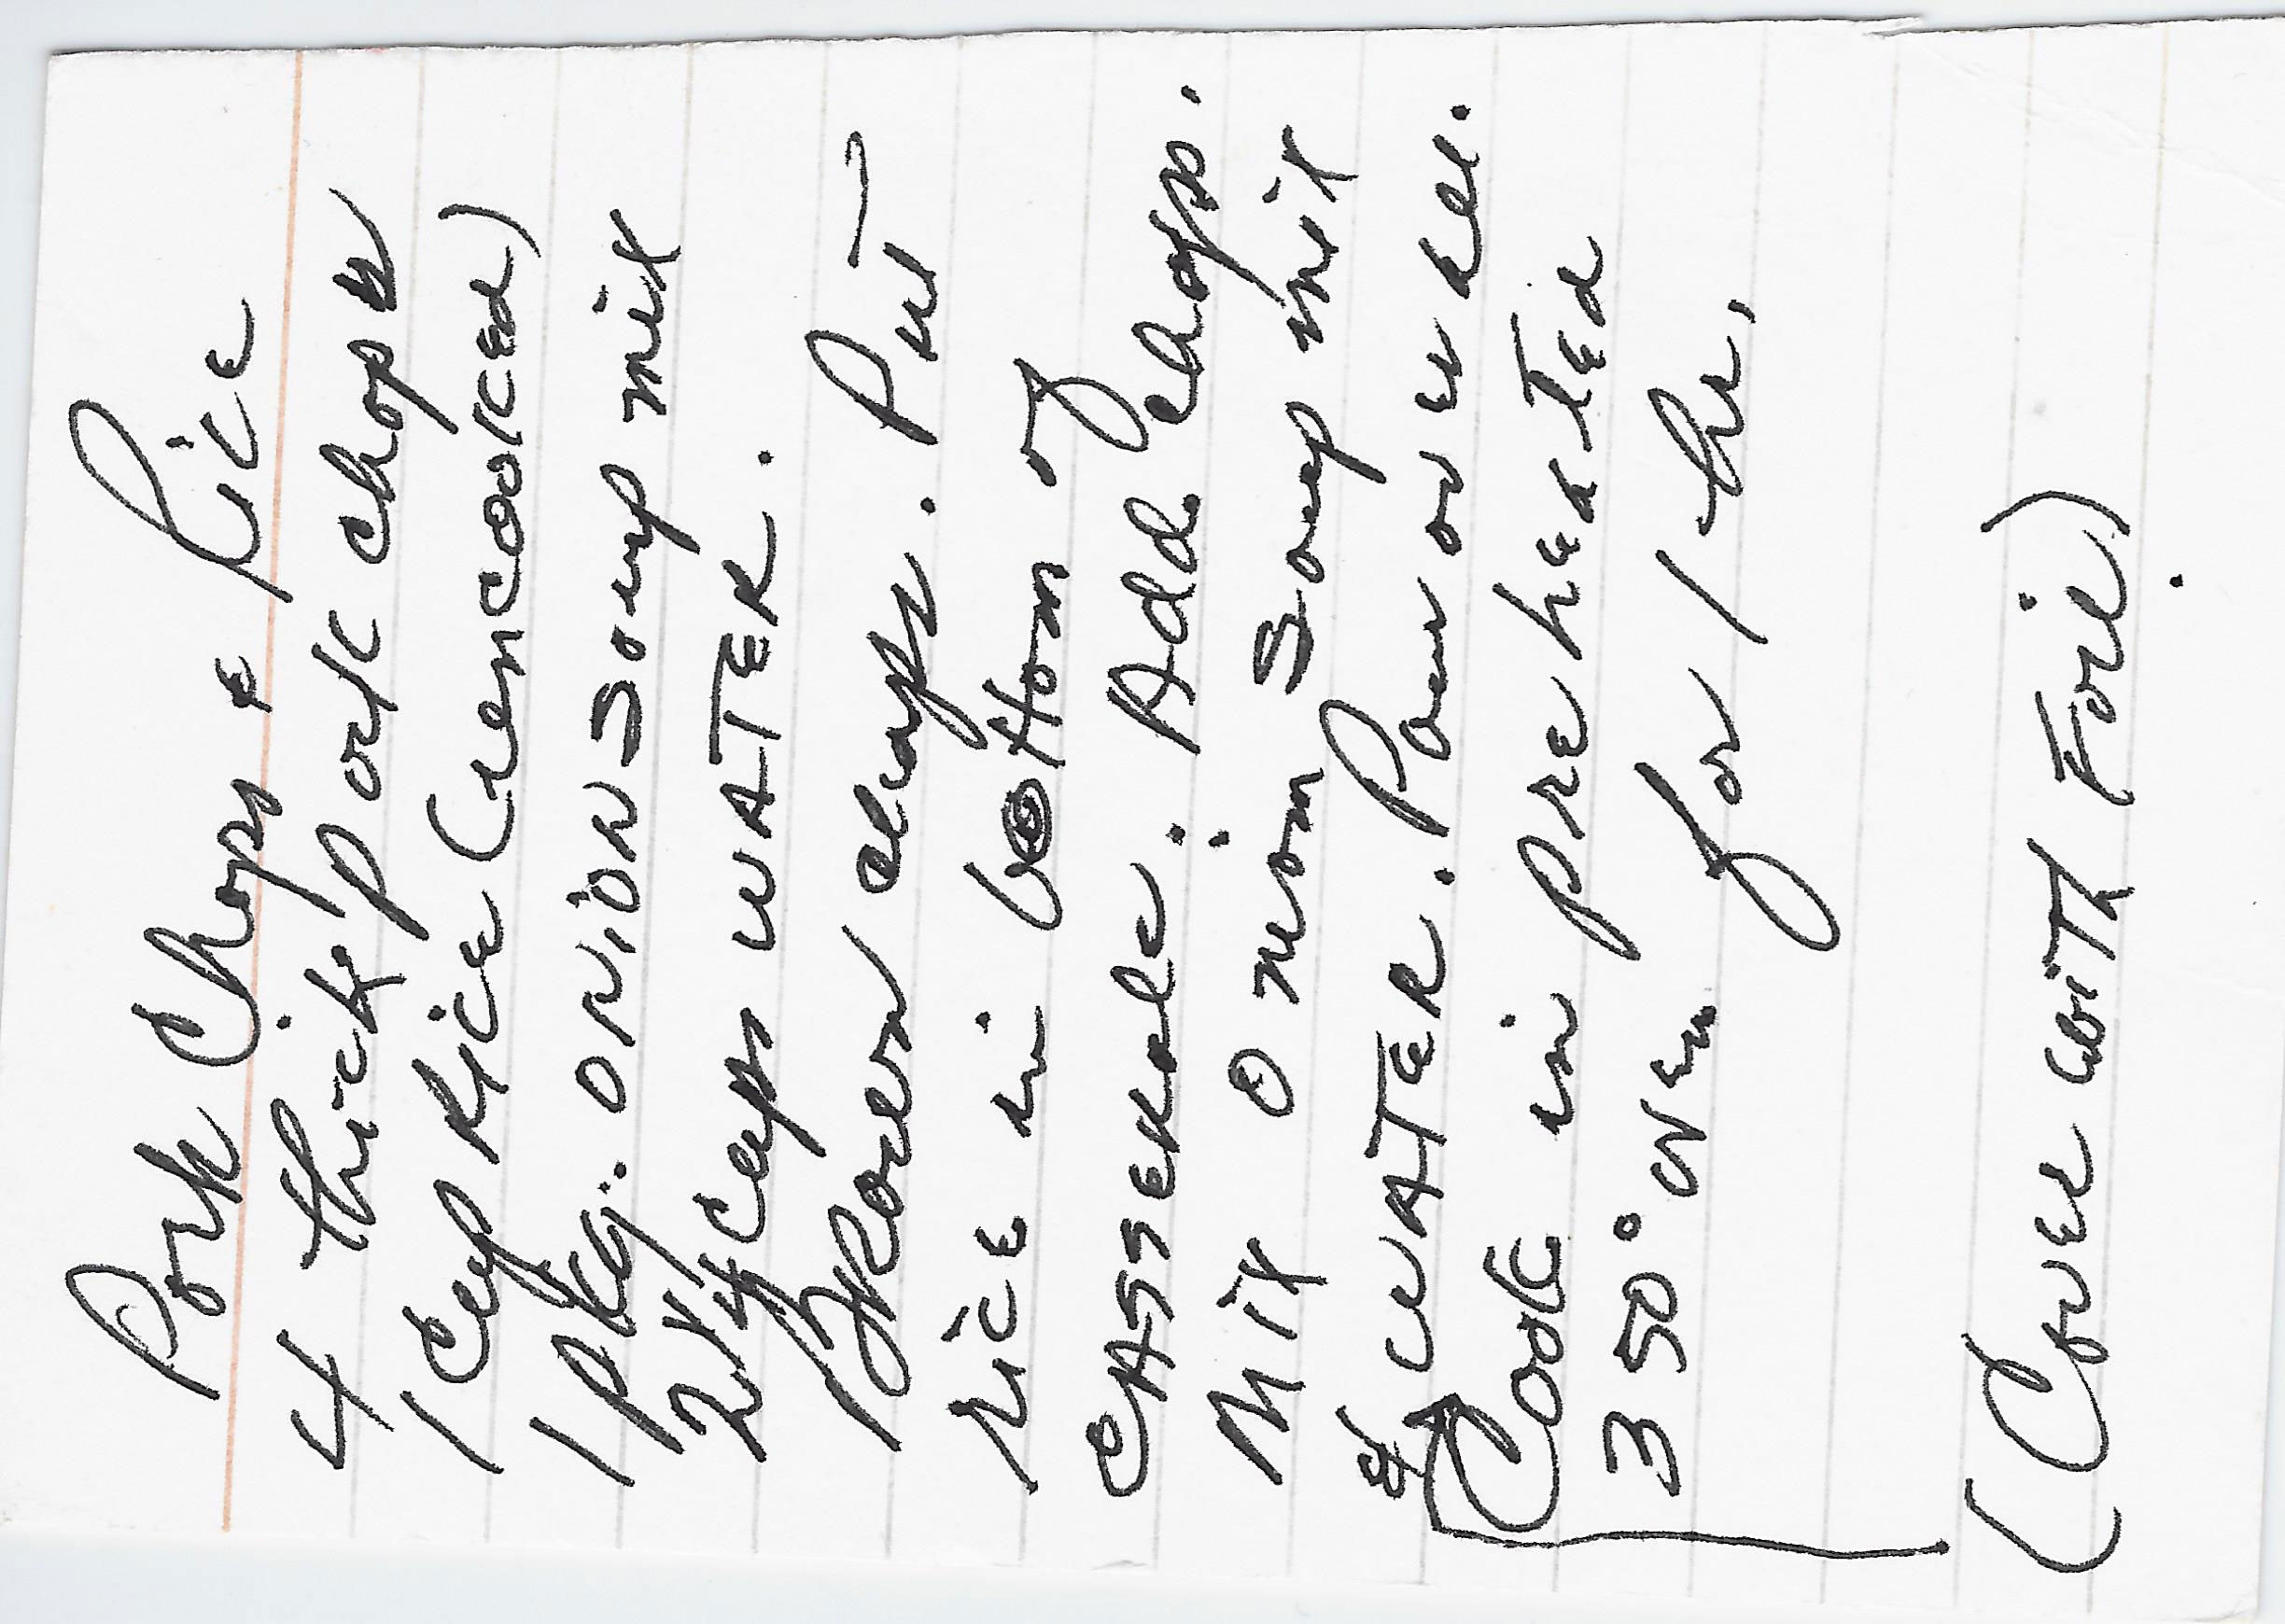 Pork Chops & Rice
4 thick pork chops
1 cup Rice (uncooked)
1 pkg. ONION Soup mix
cups WATER.
Brown chops. Put
rice in bottom of
CASSEROLE. Add chops.
Mix onion Soup mix
& WATER. Pour over all.
Cook in preheated
350° oven for 1 hr.
(Cover with Foil)